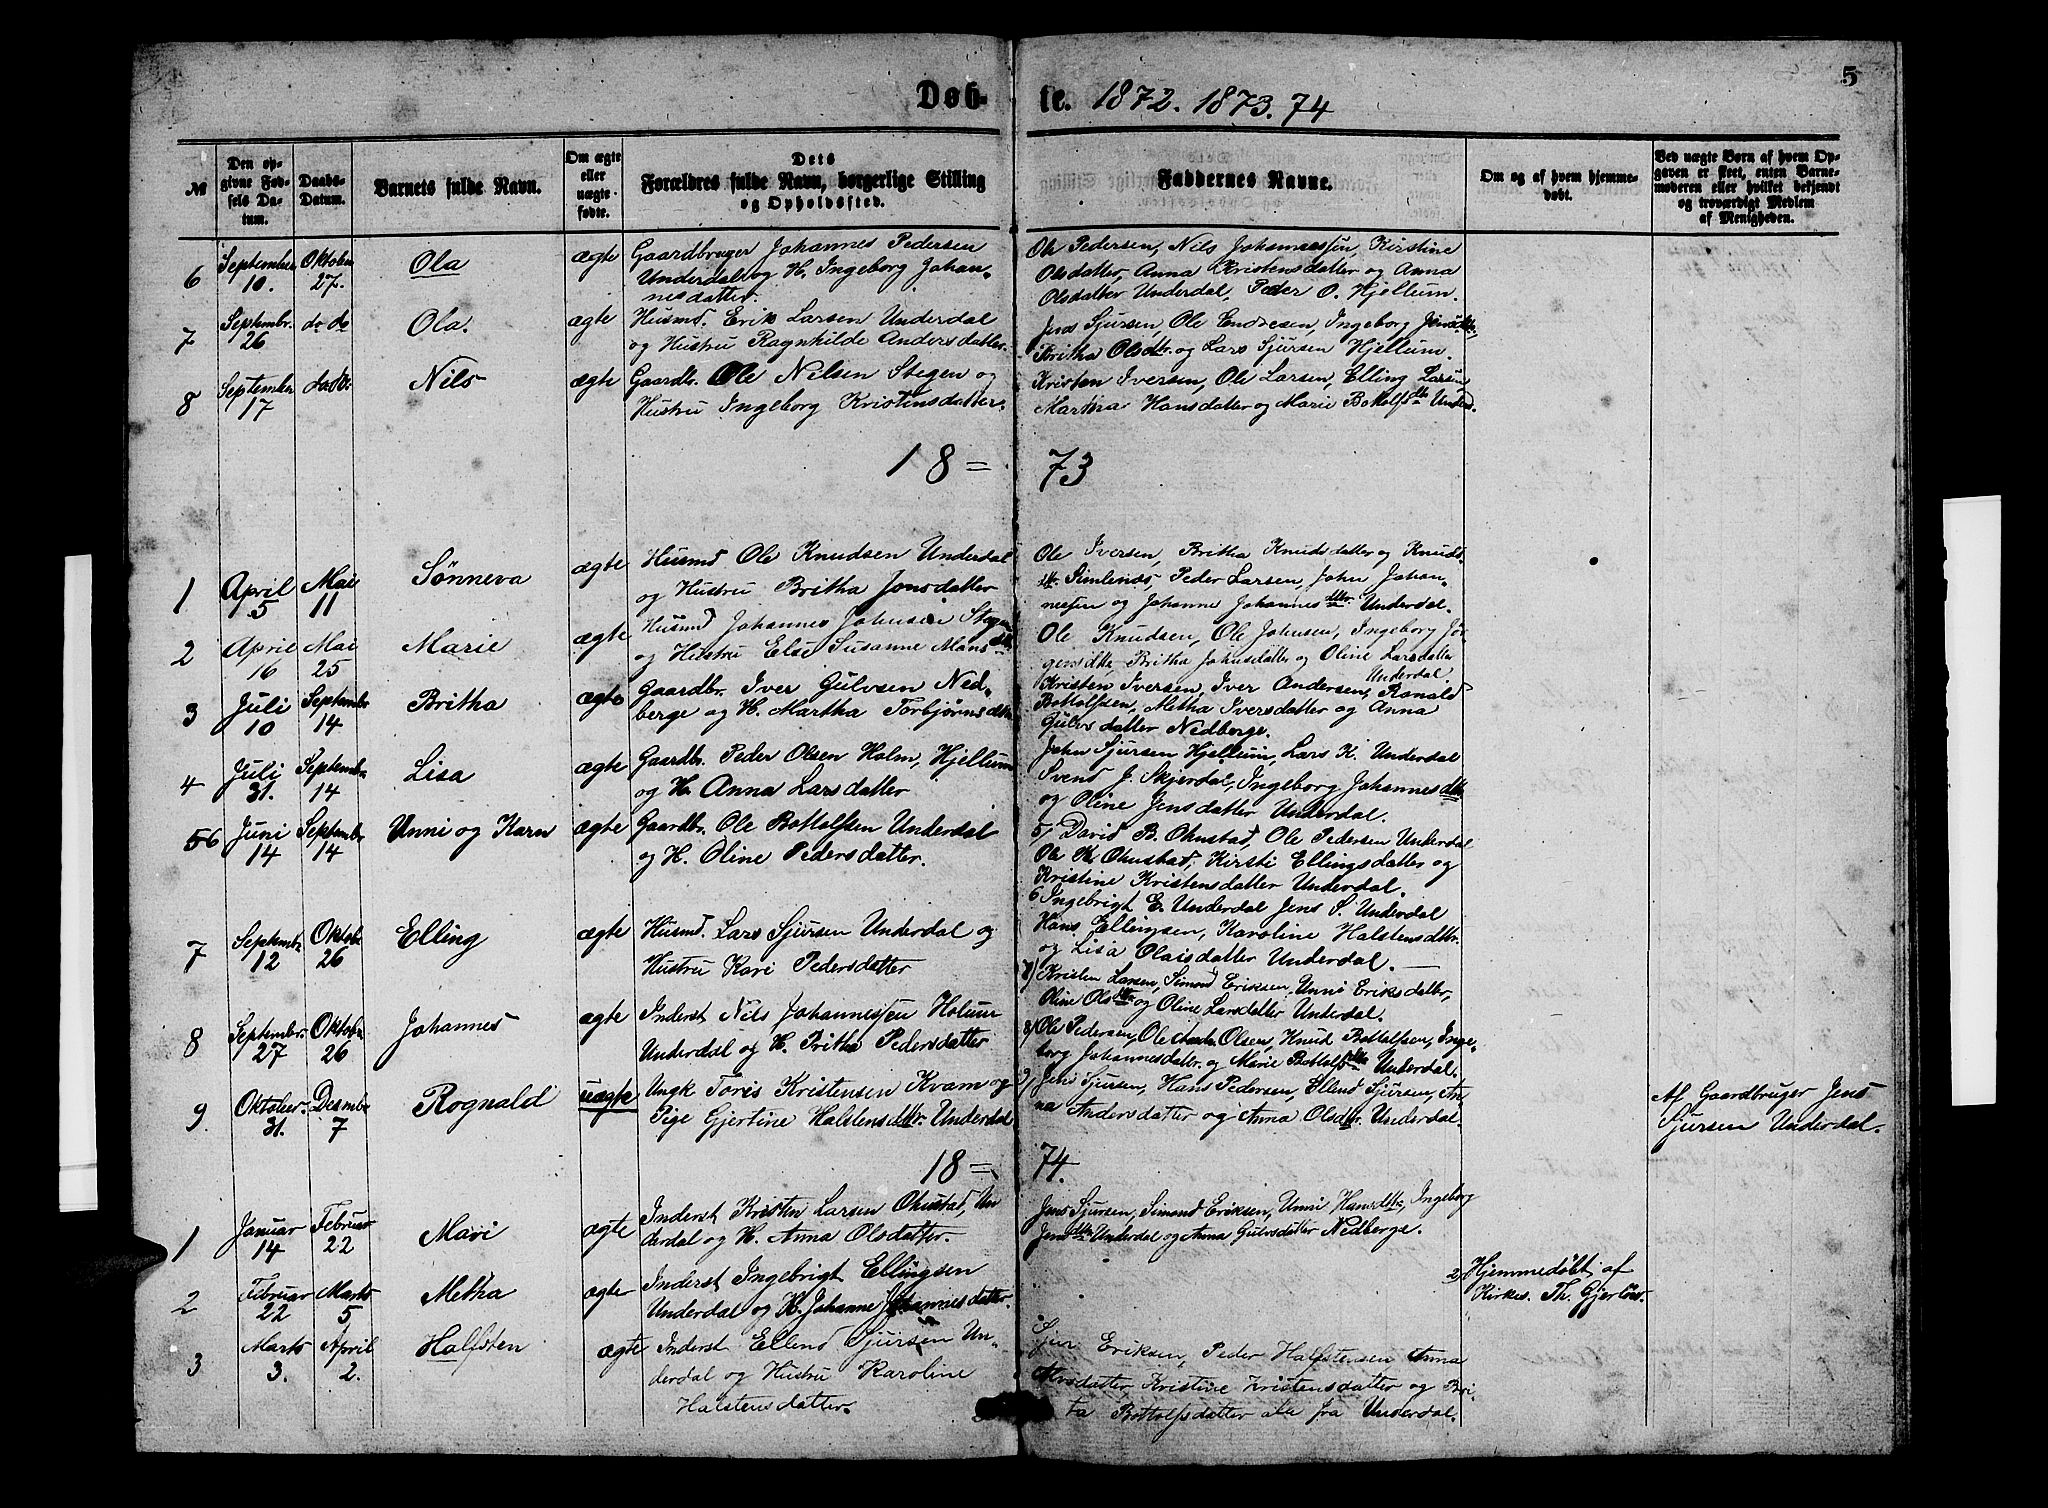 Døb- te. 1872. 1873. 74
5
№
Den op-
givne Fød-
sels Da-
tum.
Daabs-
Datum.
Barnets fulde Navn.
Om ægte
eller
uægte
fødte.
Dets
Forældres fulde Navn, borgerlige Stilling
og Opholdssted.
Faddernes Navne.
Om og af hvem hjemme-
døbt.
Ved uægte Børn af hvem Op-
gaven er skeet, enten Barne-
moderen eller hvilket bekjendt
og troværdigt Medlem
af Menigheden.
6 September 10. Oktober 27. Ola ægte
Gaardbruger Johannes Pedersen
Underdal og H. Ingeborg Johan-
nesdatter.
Ole Pedersen, Nils Johannessen, Kirstine
Olsdatter, Anna Kristensdatter og Anna
Olsdatter Underdal, Peder O. Hjellum.
7 Septembr. 26 do do Ola. ægte
Husmd. Erik Larsen Underdal
og Hustru Ragnhilde Andersdatter.
Jens Sjursen, Ole Endresen, Ingeborg Jensdtr,
Britha Olsdtr. og Lars Sjursen Hjellum.
8 September 17 do do. Nils ægte
Gaardbr. Ole Nilsen Stegen og
Hustru Ingeborg Kristensdatter.
Kristen Iversen, Ole Larsen, Elling Larsen
Martha Hansdatter og Marie Bottolfsdtr Underd.
18 = 73
1 April 5 Mai 11 Sønneva ægte
Husmd Ole Knudsen Underdal
og Hustru Britha Jonsdatter
Ole Iversen, Britha Knudsdatter og Knuds
dtr. Simlenæs, Peder Larsen, John Johan-
nessen og Johanne Johannesdtr. Underdal.
2 April 16 Mai 25 Marie ægte
Husmd Johannes Johnsen Stegen
og Hustru Else Susanne Monsdtr
Ole Knudsen, Ole Johnsen, Ingeborg Jør-
gensdtr, Britha Johnsdatter og Oline Larsdatter
Underdal.
3 Juli 10 Septembr 14 Britha ægte
Gaardbr. Iver Gulvsen Ned-
berge og H. Martha Torbjørnsdtr
Kristen Iversen, Iver Andersen, Ronald
Bottolfsen, Metha Iversdatter og Anna
Gulvsdatter Nedberge.
4 Juli 31. Septembr 14 Lisa ægte
Gaardbr. Peder Olsen Holm, Hjellum
og H. Anna Larsdatter
John Sjursen Hjellum, Lars K. Underdal
Svend J. Skjerdal, Ingeborg Johannesdtr
og Oline Jensdatter Underdal.
56 Juni 14 Septembr 14 Unni og Karn ægte
Gaardbr. Ole Bottolfsen Underdal
og H. Oline Pedersdatter.
5/ David B. Ohnstad, Ole Pedersen Underdal
Ole K Ohnstad, Kirsti Ellingsdatter og
Kristine Kristensdatter Underdal.
6 Ingebrigt E. Underdal Jens S. Underdal
Hans Ellingsen, Karoline Halstensdtr.
og Lisa Olaisdatter Underdal.
7 Septembr 12 Oktobr 26 Elling ægte
Husmd. Lars Sjursen Underdal og
Hustru Kari Pedersdatter
7) Kristen Larsen, Simond Eriksen, Unni Eriksdatter,
Oline Olsdtr. og Oline Larsdatter Underdal.
8 Septembr. 27 Oktobr 26 Johannes ægte
Inderst Nils Johannessen Holum
Underdal og H. Britha Pedersdatter
8) Ole Pedersen, Ole Olsen, Knud Bottolfsen, Inge-
borg Johannesdatter og Marie Bottolfsdtr Underdal.
9 Oktober. 31. Desmbr 7 Rognald uægte
Ungk Tøris Kristensen Kvam og
Pige Gjertine Halstensdtr. Underdal
9) Jens Sjursen, Hans Pedersen, Ellend Sjursen, An-
na Andersdatter og Anna Olsdtr. Underdal.
Af Gaardbruger Jens
Sjursen Underdal.
18 = 74.
1 Januar 14 Februar 22 Mari ægte
Inderst Kristen Larsen Ohnstad, Un
derdal og H. Anna Olsdatter.
Jens Sjursen, Simond Eriksen, Unni Hansdtr, Ingeborg
Jensdtr Underdal og Anna Gulvsdatter Nedberge.
2 Februar 22 Marts 5 Metha ægte
Inderst Ingebrigt Ellingsen
Underdal og H. Johanne Johannesdatter.
2) Hjemmedøbt af
Kirkes. Th. Gjerløw.
3 Marts 3. April 2. Halfsten ægte
Inderst Ellend Sjursen Un-
derdal og Hustru Karoline
Halstensdatter.
Sjur Eriksen, Peder Halfstensen Anna
Kristine Kristensdatter og Bri-
ta Bottolfsdatter ale fra Underdal.